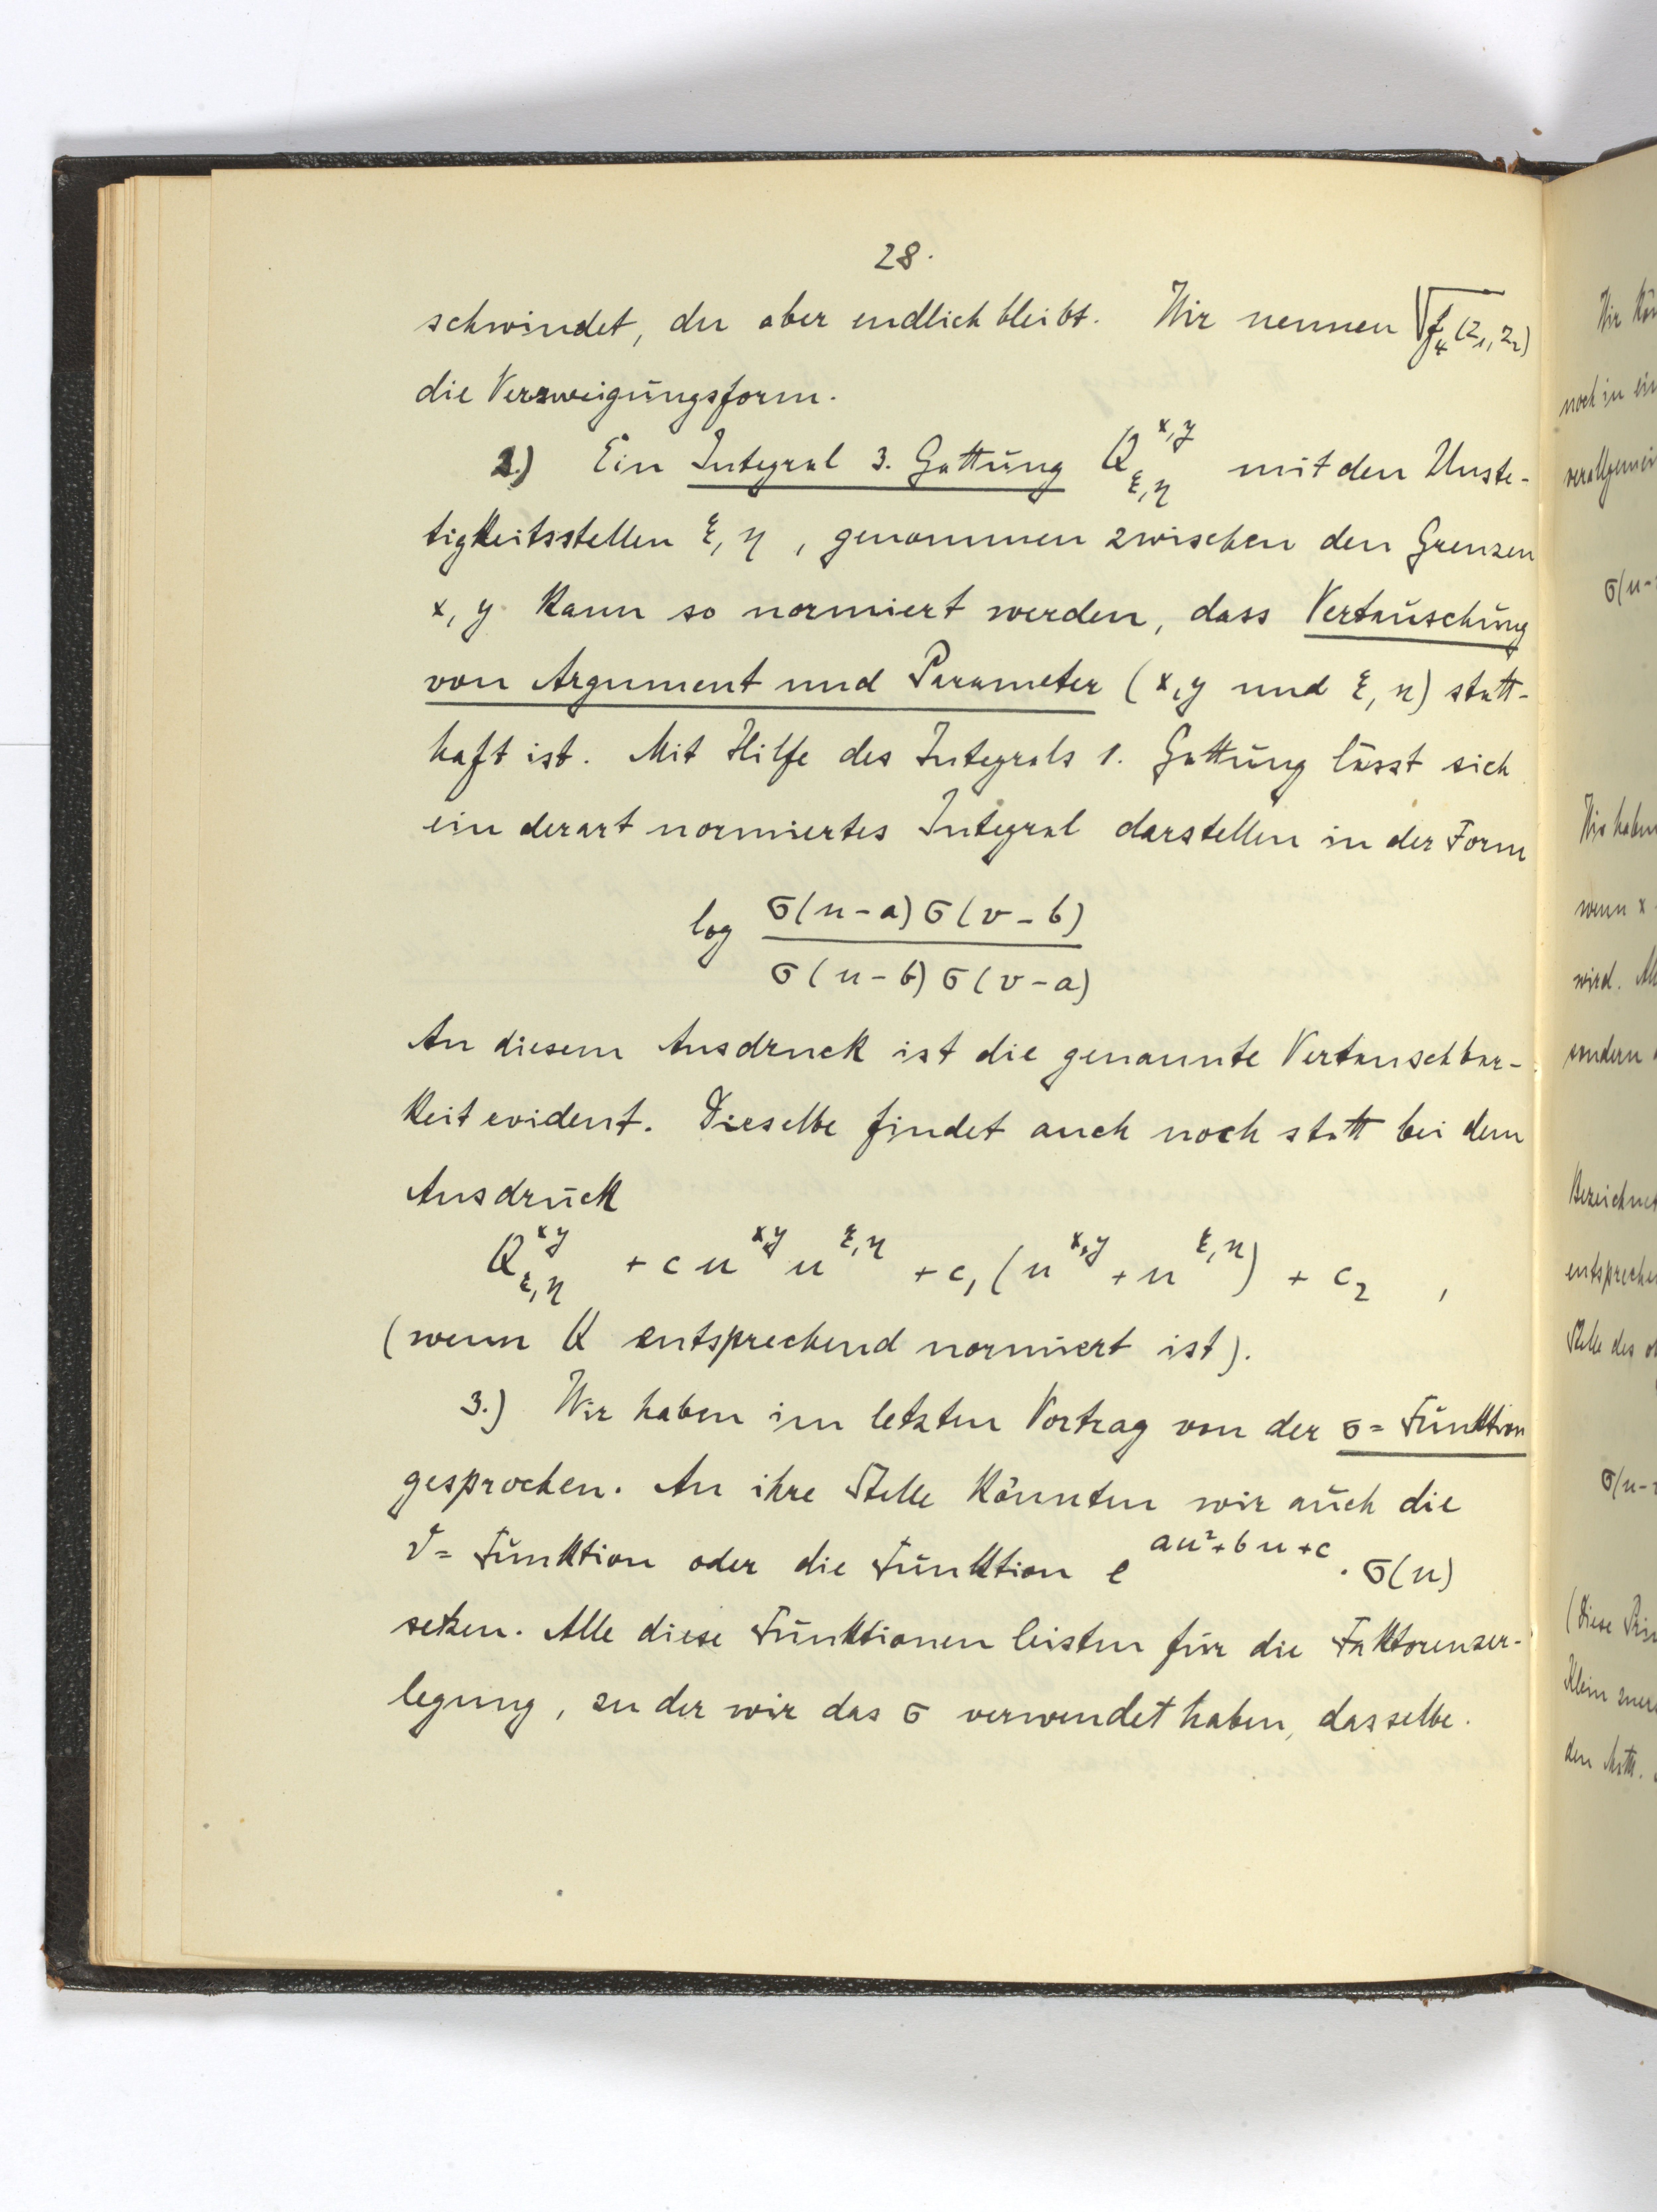 28.
schwindet, du aber endlich bleibt. Wir nennen √f₄(z₁, z₂)
die Verzweigungsform.
2.) Ein Integral 3. Gattung Q^{x,y}_{ξ,η} mit den Unste-
tigkeitsstellen ξ, η, genommen zwischen den Grenzen
x, y kann so normiert werden, dass Vertauschung
von Argument und Parameter (x, y und ξ, η) statt-
haft ist. Mit Hilfe des Integrals 1. Gattung lässt sich
ein derart normiertes Integral darstellen in der Form
log σ(u-a) σ(v-b) / σ(u-b) σ(v-a)
An diesem Ausdruck ist die genannte Vertauschbar-
keit evident. Dieselbe findet auch noch statt bei dem
Ausdruck
Q^{xy}_{ξ,η} + c u^{x,y} u^{ξ,η} + c₁ (u^{x,y} + u^{ξ,η}) + c₂ ,
(wenn Q entsprechend normiert ist).
3.) Wir haben im letzten Vortrag von der σ=Funktion
gesprochen. An ihre Stelle könnten wir auch die
ϑ=Funktion oder die Funktion e^{au²+bu+c} · σ(u)
setzen. Alle diese Funktionen leisten für die Faktorenzer-
legung, zu der wir das σ verwendet haben, dasselbe.
Wir kön
noch in ein
verallgemein
σ(u-
Wir haben
wenn x
wird.
sondern
Bezeichnet
entspreche
Stelle des
σ(u-
(diese
Klein
den Math.